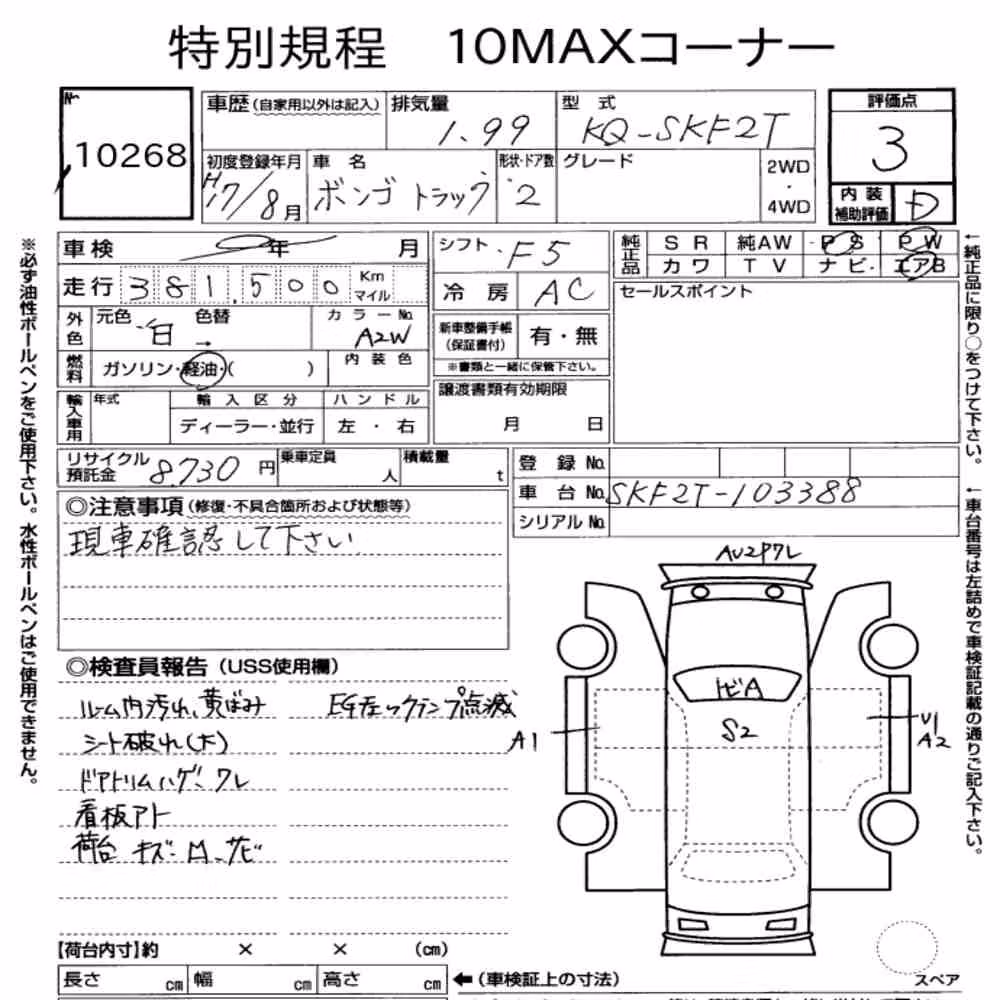 特別規程 10MAXコーナー
No.
10268
車歴(自家用以外は記入)
排気量
1.99
型 式
KQ-SKF2T
評価点
3
初度登録年月
H17/8月
車 名
ボンゴ トラック
形状・ドア数
2
グレード
2WD
・
4WD
内装
補助評価
D
車検 年 月
シフト F5
純正品
SR 純AW PS PW
カワ TV ナビ・ エアB
走行 381,500 Km
マイル
冷房 AC
セールスポイント
外色
元色 白 色替 →
カラーNo.
A2W
新車整備手帳
(保証書付)
有・無
※書類と一緒に保管下さい。
燃料
ガソリン・軽油・( )
内装色
譲渡書類有効期限
月 日
輸入車用
年式
輸入区分
ディーラー・並行
ハンドル
左・右
リサイクル
預託金 8.730円
乗車定員
人
積載量
t
登録No.
車台No. SKF2T-103388
シリアルNo.
◎注意事項(修復・不具合箇所および状態等)
現車確認して下さい
◎検査員報告(USS使用欄)
ルーム内汚れ、黄ばみ
シート破れ(大)
ドアトリムハゲ、ワレ
看板アト
荷台 キズ・凹、サビ
EGチェックランプ点滅
AU2Pワレ
トビA
S2
A1
U1
A2
スペア
【荷台内寸】約 × × (cm)
長さ cm 幅 cm 高さ cm ←(車検証上の寸法)
※必ず油性ボールペンをご使用下さい。水性ボールペンはご使用できません。
←純正品に限り○をつけて下さい。
←車台番号は左詰めで車検証記載の通りご記入下さい。